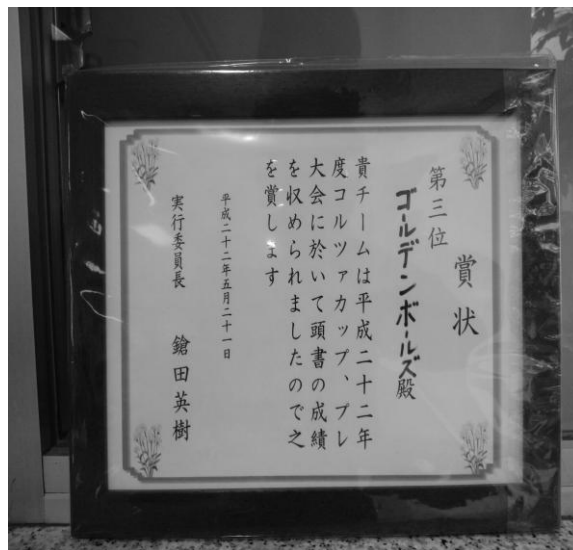 賞状
第三位
ゴールデンボールズ殿
貴チームは平成二十二年
度コルツァカップ、プレ
大会に於いて頭書の成績
を収められましたので之
を賞します
平成二十二年五月二十一日
実行委員長 鎗田英樹